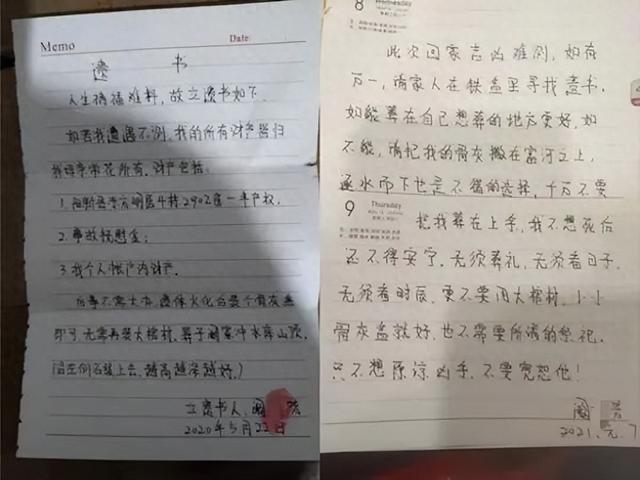 Memo
Date:
遗 书
人生祸福难料,故立遗书如下.
如若我遭遇不测,我的所有财产皆归
我母李带花所有.财产包括:
4栋2902室一半产权,
2.事故抚慰金;
3.我个人帐户内财产.
后事不需大办,遗体火化后装个骨灰盒
即可,无需再装大棺材,葬于阚家冲水库山顶,
后左侧石壁上去,越高越深越好,)
立遗书人:阚
2020年5月22日
8
Wednesday
此次回家吉凶难测,如有
万一,请家人在铁盒里寻找遗书,
如能葬在自己想葬的地方更好,如
不能,请把我的骨灰撒在富河之上,
逐水而下也是不错的选择,千万不要
9
Thursday
把我葬在上手,我不想死后
还不得安宁.无须葬礼,无须看日子,
无须看时辰,更不要用大棺材,小小
骨灰盒就好,也不需要所谓的祭祀.
只不想原谅凶手,不要宽恕他!
阚
2021.元.7